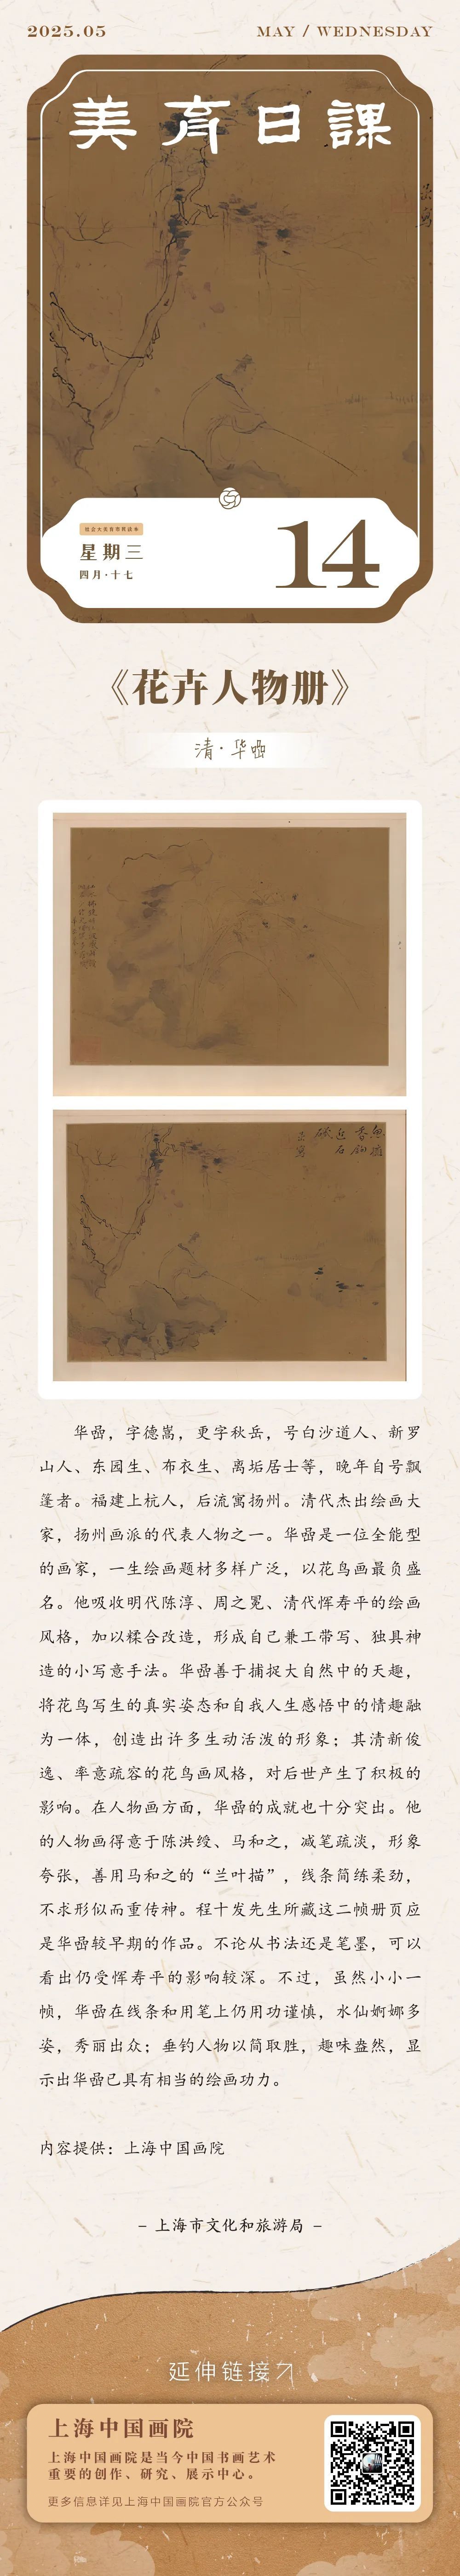 2025.05
MAY / WEDNESDAY
美育日課
社会大美育常育读本
星期三
四月·十七
14
《花卉人物册》
清·华喦
华喦，字德嵩，更字秋岳，号白沙道人、新罗
山人、东园生、布衣生、离垢居士等，晚年自号飘
篷者。福建上杭人，后流寓扬州。清代杰出绘画大
家，扬州画派的代表人物之一。华喦是一位全能型
的画家，一生绘画题材多样广泛，以花鸟画最负盛
名。他吸收明代陈淳、周之冕、清代恽寿平的绘画
风格，加以糅合改造，形成自己兼工带写、独具神
造的小写意手法。华喦善于捕捉大自然中的天趣，
将花鸟写生的真实姿态和自我人生感悟中的情趣融
为一体，创造出许多生动活泼的形象；其清新俊
逸、率意疏容的花鸟画风格，对后世产生了积极的
影响。在人物画方面，华喦的成就也十分突出。他
的人物画得意于陈洪绶、马和之，减笔疏淡，形象
夸张，善用马和之的“兰叶描”，线条简练柔劲，
不求形似而重传神。程十发先生所藏这二帧册页应
是华喦较早期的作品。不论从书法还是笔墨，可以
看出仍受恽寿平的影响较深。不过，虽然小小一
帧，华喦在线条和用笔上仍用功谨慎，水仙婀娜多
姿，秀丽出众；垂钓人物以简取胜，趣味盎然，显
示出华喦已具有相当的绘画功力。
内容提供：上海中国画院
– 上海市文化和旅游局 –
延伸链接
上海中国画院
上海中国画院是当今中国书画艺术
重要的创作、研究、展示中心。
更多信息详见上海中国画院官方公众号